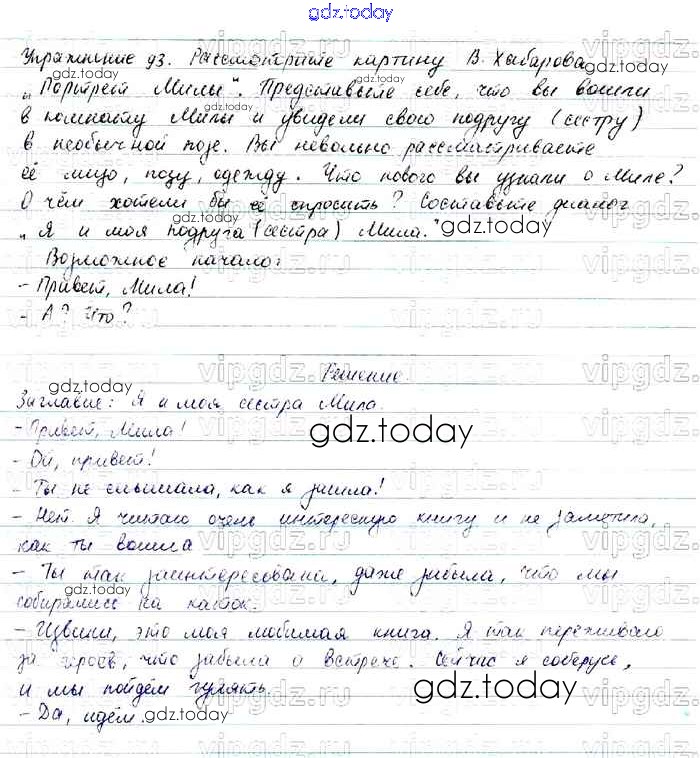 gdz.today
Упражнение 93. Рассмотрите картину В. Хабарова
„Портрет Милы". Представьте себе, что вы вошли
в комнату Милы и увидели свою подругу (сестру)
в необычной позе. Вы невольно рассматриваете
её лицо, позу, одежду. Что нового вы узнали о Миле?
О чём хотели бы её спросить? Составьте диалог
„Я и моя подруга (сестра) Мила."
Возможное начало:
- Привет, Мила!
- А? Что?
Решение.
Заглавие: Я и моя сестра Мила.
- Привет, Мила!
- Ой, привет!
- Ты не слышала, как я зашла!
- Нет. Я читаю очень интересную книгу и не заметила,
как ты вошла
- Ты так заинтересована, даже забыла, что мы
собирались на каток.
- Извини, это моя любимая книга. Я так переживаю
за героев, что забыла о встрече. Сейчас я соберусь,
и мы пойдём гулять.
- Да, идём.